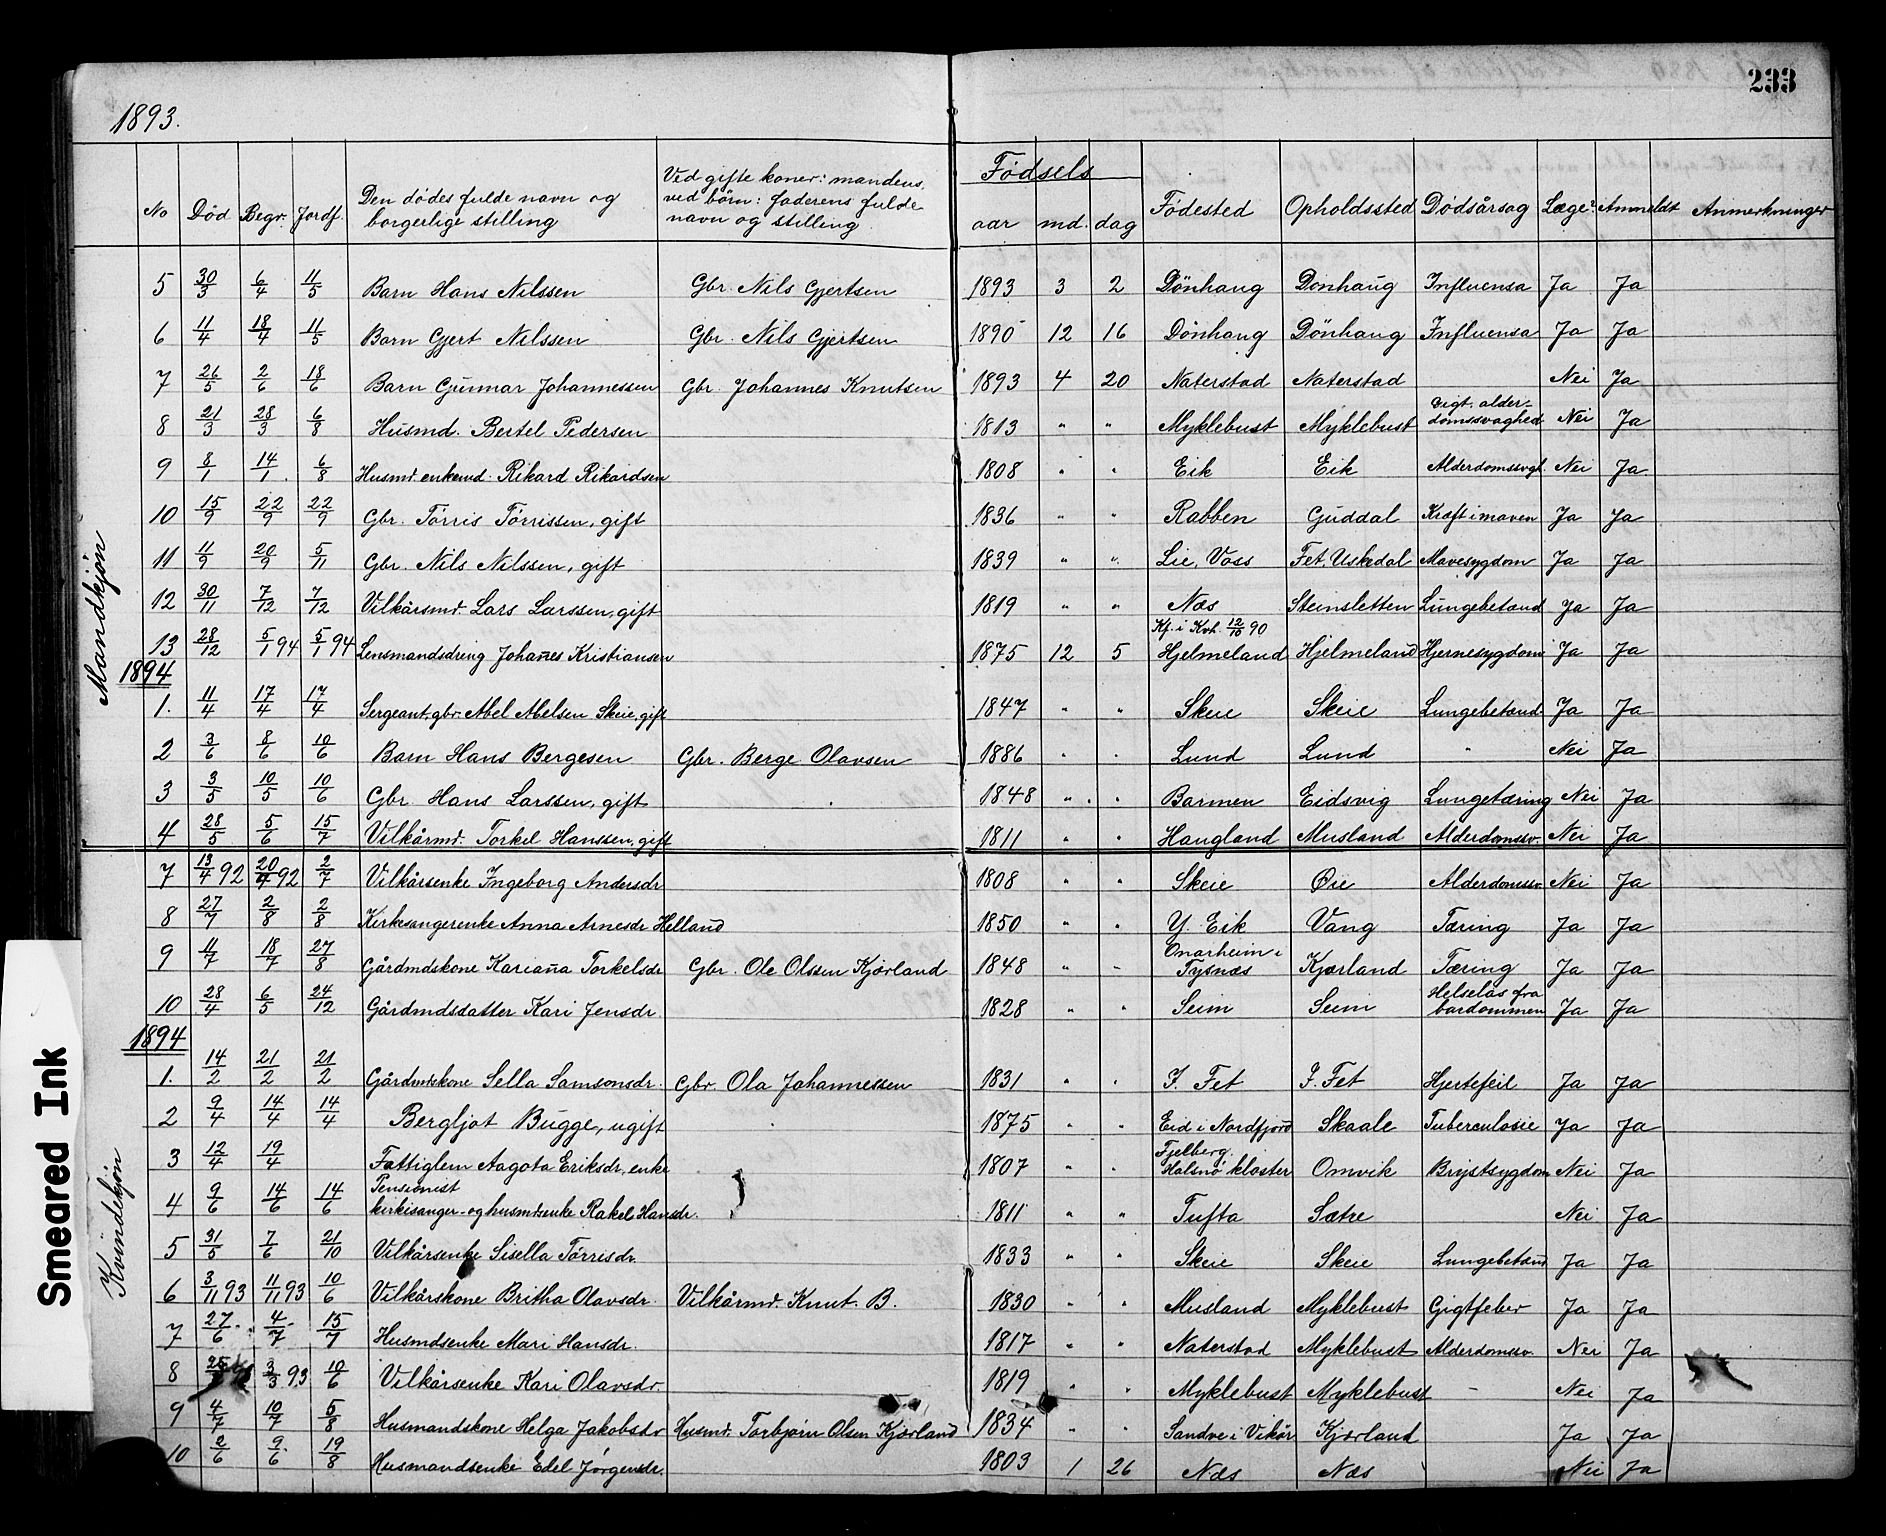 233
1893.
No Død Begr. Jordf. Den dødes fulde navn og borgerlige stilling Ved gifte koner: mandens, ved børn: faderens fulde navn og stilling Fødsels aar md. dag Fødested Opholdssted Dødsårsag Læge? Anmeldt Anmerkninger
Mandkjøn
5 30/3 6/4 11/5 Barn Hans Nilssen Gbr. Nils Gjertsen 1893 3 2 Dönhaug Dönhaug Influensa Ja Ja
6 11/4 18/4 11/5 Barn Gjert Nilssen Gbr. Nils Gjertsen 1890 12 16 Dönhaug Dönhaug Influensa Ja Ja
7 26/5 2/6 18/6 Barn Gunnar Johannessen Gbr. Johannes Knutsen 1893 4 20 Naterstad Naterstad Nei Ja
8 21/3 28/3 6/8 Husmd. Bertel Pedersen 1813 " " Myklebust Myklebust Gigt, alderdomssvaghed Nei Ja
9 8/1 14/1 6/8 Husmd. enkemd. Rikard Rikardsen 1808 " " Eik Eik Alderdomssvgh. Nei Ja
10 15/9 22/9 22/9 Gbr. Törris Törrissen, gift 1836 " " Rabben Guddal Kræft i maven Ja Ja
11 11/9 20/9 5/11 Gbr. Nils Nilssen, gift 1839 " " Lie, Voss Fet, Uskedal Mavesygdom Ja Ja
12 30/11 7/12 7/12 Vilkårsmd. Lars Larssen, gift 1819 " " Næs Steinsletten Lungebetænd Ja Ja
Kf. i Kvh. 12/10 90
13 28/12 5/1 94 5/1 94 Lensmandsdreng Johañes Kristiansen 1875 12 5 Hjelmeland Hjelmeland Hjernesygdom Ja Ja
1894
1. 11/4 17/4 17/4 Sergeant, gbr. Abel Abelsen Skeie, gift 1847 " " Skeie Skeie Lungebetænd. Ja Ja
2 3/6 8/6 10/6 Barn Hans Bergesen Gbr. Berge Olavsen 1886 " " Lund Lund " Nei Ja
3 3/5 10/5 10/6 Gbr Hans Larssen, gift 1848 " " Barmen Eidsvig Lungetæring Nei Ja
4 28/5 5/6 15/7 Vilkårmd. Torkel Hanssen, gift 1811 " " Haugland Musland Alderdomssv. Nei Ja
Kvindekjøn
7 13/4 92 20/4 92 2/7 Vilkårsenke Ingeborg Andersdr 1808 " " Skeie Øie Alderdomssv. Nei Ja
8 27/7 2/8 2/8 Kirkesangerenke Anna Arnesdr Helland 1850 " " Y. Eik Vang Tæring Ja Ja
9 11/7 18/7 27/8 Gårdmdskone Kariaña Torkelsdr Gbr. Ole Olssen Kjærland 1848 " " Onarheim i Tysnæs Kjærland Tæring Ja Ja
10 28/4 6/5 24/12 Gårdmdsdatter Kari Jensdr 1828 " " Seim Seim Helselös fra bardommen Ja Ja
1894
1. 14/2 21/2 21/2 Gårdmdskone Sella Samsonsdr. Gbr. Ola Johannessen 1831 " " I. Fet I. Fet Hjertefeil Ja Ja
2 9/4 14/4 14/4 Bergljot Bugge, ugift 1875 " " Eid i Nordfjord Skaale Tuberculosie Ja Ja
3 12/4 19/4 Fattiglem Aagota Eriksdr, enke 1807 " " Fjelberg, Halsnø kloster Omvik Brystsygdom Nei Ja
4 9/6 14/6 14/6 Pensionist kirkesanger- og husmdsenke Rakel Hansdr. 1811 " " Tufta Sætre Nei Ja
5 31/5 7/6 21/10 Vilkårsenke Sisella Törrisdr. 1833 " " Skeie Skeie Lungebetænd Ja Ja
6 3/11 93 11/11 93 10/6 Vilkårskone Britha Olavsdr. Vilkårmd. Knut. B. 1830 " " Musland Myklebust Gigtfeber Ja Ja
7 27/6 4/7 15/7 Husmdsenke Mari Hansdr. 1817 " " Naterstad Myklebust Alderdomssv. Nei Ja
8 3/3 93 10/6 Vilkårsenke Kari Olavsdr. 1819 " " Myklebust Myklebust - Nei Ja
9 4/7 10/7 5/8 Husmandskone Helga Jakobsdr Husmd. Torbjørn Olsen Kjærland 1834 " " Sandve i Vikör Kjærland Ja Ja
10 2/6 9/6 19/8 Husmandsenke Edel Jørgensdr. 1803 1 26 Næs Næs Nei Ja
Smeared Ink